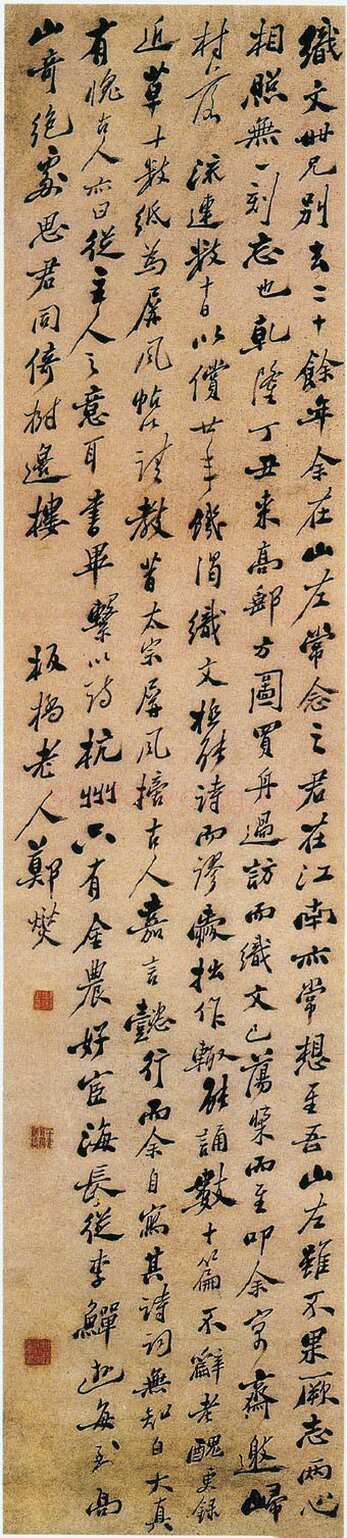 織文世兄別去二十餘年余在山左常念之君在江南亦常想至吾山左雖不果厥志兩心
相照無一刻忘也乾隆丁丑來高郵方圖買舟過訪而織文已蕩槳而至叩余寓齋邀歸
村落流連數十日以償廿年饑渴織文極能詩而謬愛拙作輙能誦數十篇不辭老醜更錄
近草十數紙為屏風帖以請教昔太宗屏風摘古人嘉言懿行而余自寫其詩詞無知自大真
有愧古人亦曰從主人之意耳書畢繫以詩杭州只有金農好宦海長從李鱓遊每到高
山奇絕處思君同倚樹邊樓
板橋老人鄭燮